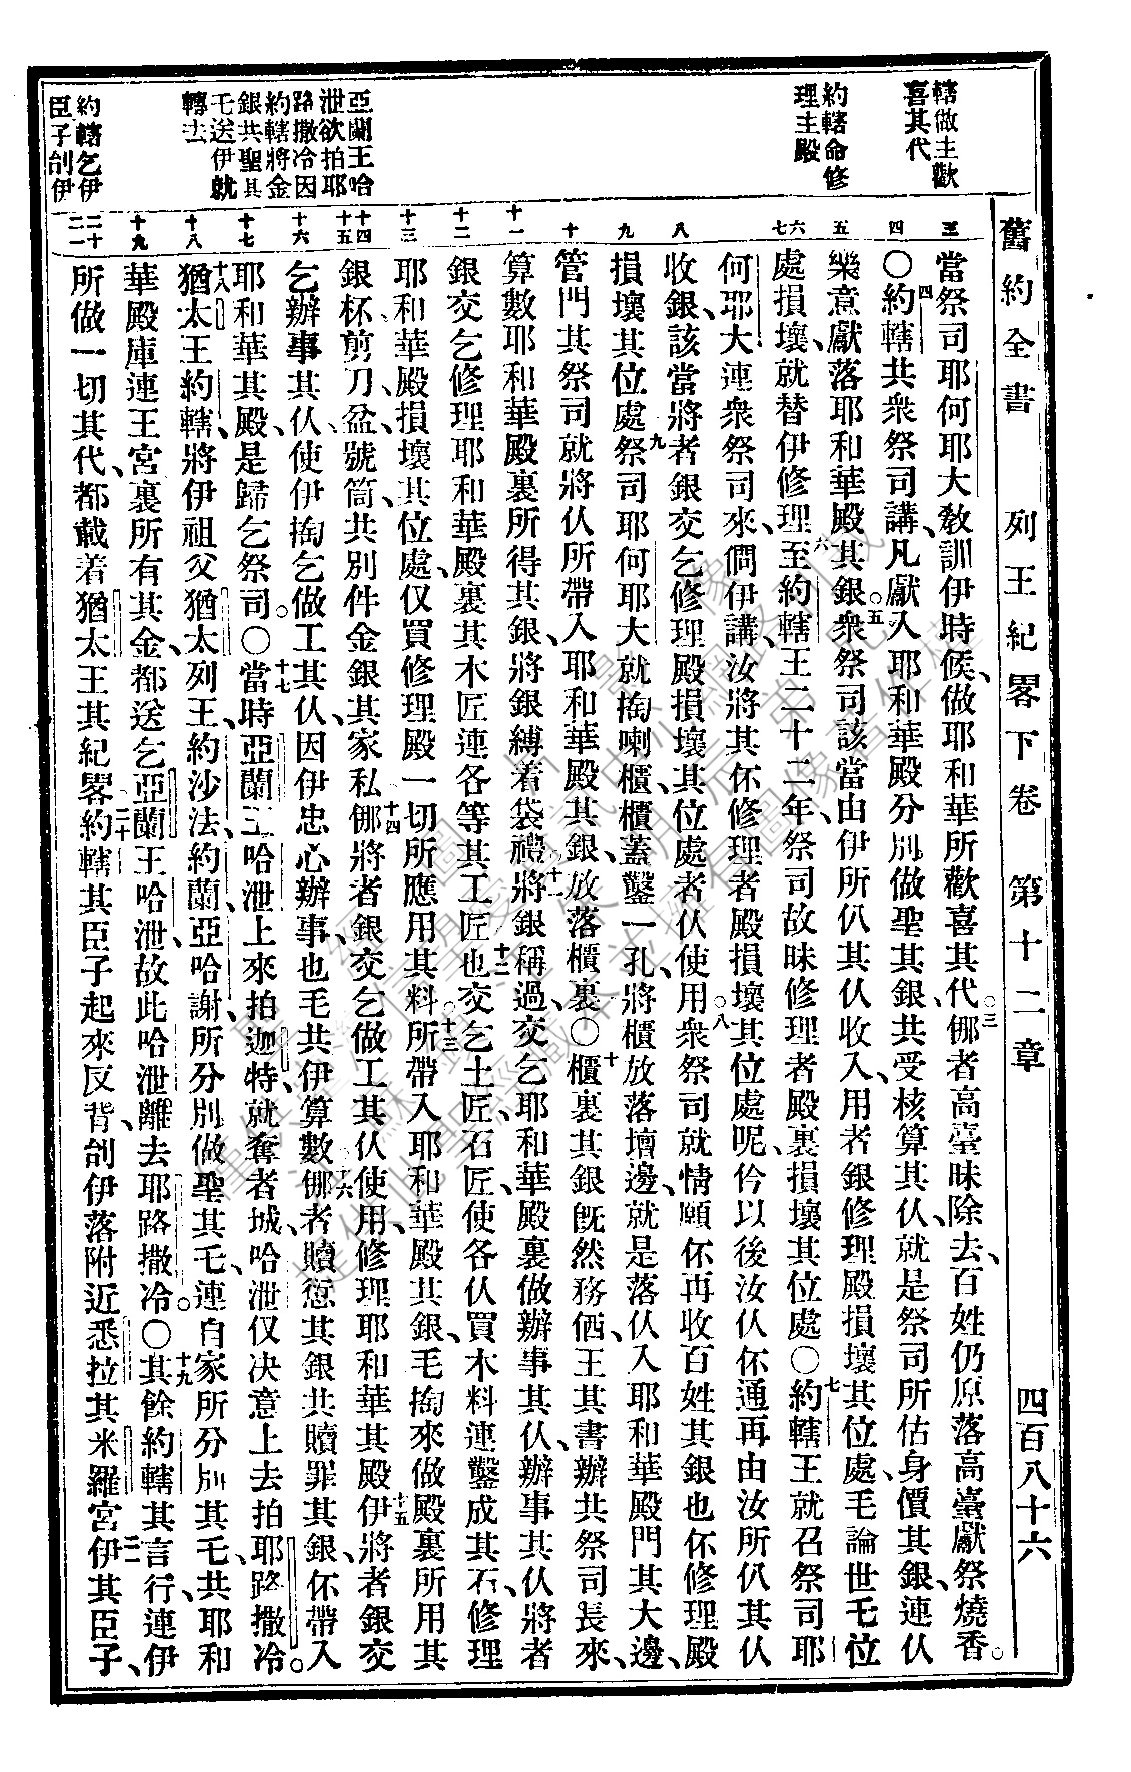 舊約全書　列王紀畧下卷　第十二章　四百八十六
轄做主歡
喜其代
約轄命修
理主殿
亞蘭王哈
泄欲拍耶
路撒冷因
約轄將金
銀共聖其
乇送伊就
轉去
約轄乞伊
臣子刣伊
三
四
五
六
七
八
九
十
十一
十二
十三
十四
十五
十六
十七
十八
十九
二十
二一
當祭司耶何耶大教訓伊時候、做耶和華所歡喜其代。三𠆧者高臺昧除去、百姓仍原落高臺獻祭燒香。
〇四約轄共衆祭司講、凡獻入耶和華殿分別做聖其銀、共受核算其仈、就是祭司所估身價其銀、連仈
樂意獻落耶和華殿其銀、五衆祭司該當由伊所仈其仈收入、用者銀修理殿損壞其位處、毛論世乇位
處損壞、就替伊修理、六至約轄王二十二年、祭司故昧修理者殿裏損壞其位處〇七約轄王就召祭司耶
何耶大連衆祭司來、問伊講、汝將其伓修理者殿損壞其位處呢、仱以後汝仈伓通再由汝所仈其仈
收銀、該當將者銀交乞修理殿損壞其位處者仈使用。八衆祭司就情願伓再收百姓其銀也伓修理殿
損壞其位處、九祭司耶何耶大就掏喇櫃、櫃蓋鑿一孔、將櫃放落壇邊、就是落仈入耶和華殿門其大邊、
管門其祭司就將仈所帶入耶和華殿其銀、放落櫃裏〇十櫃裏其銀旣然務価、王其書辦共祭司長來、
算數耶和華殿裏所得其銀、將銀縛着袋禮、十一將銀稱過、交乞耶和華殿裏做辦事其仈、辦事其仈將者
銀交乞修理耶和華殿、裏其木匠連各等其工匠、十二也交乞土匠石匠、使各仈買木料連鑿成其石、修理
耶和華殿損壞其位處、仅買修理殿一切所應用其料。十三所帶入耶和華殿其銀、毛掏來做殿裏所用其
銀杯剪刀盆、號筒、共別件金銀其家私、十四𠆧將者銀交乞做工其仈使用、修理耶和華其殿、十五伊將者銀交
乞辦事其仈、使伊掏乞做工其仈、因伊忠心辦事、也毛共伊算數、十六𠆧者贖愆其銀共贖罪其銀、伓帶入
耶和華其殿、是歸乞祭司。〇十七當時亞蘭王哈泄上來拍迦特、就奪者城、哈泄仅决意上去拍耶路撒冷。
十八猶太王約轄、將伊祖父猶太列王、約沙法、約蘭、亞哈謝、所分別做聖其乇、連自家所分別其乇、共耶和
華殿庫連王宮裏所有其金、都送乞亞蘭王哈泄、故此哈泄離去耶路撒冷。〇十九其餘約轄其言行、連伊
所做一切其代、都載着猶太王其紀畧、二十約轄其臣子起來反背、刣伊落附近悉拉其米羅宮、二一伊其臣子、